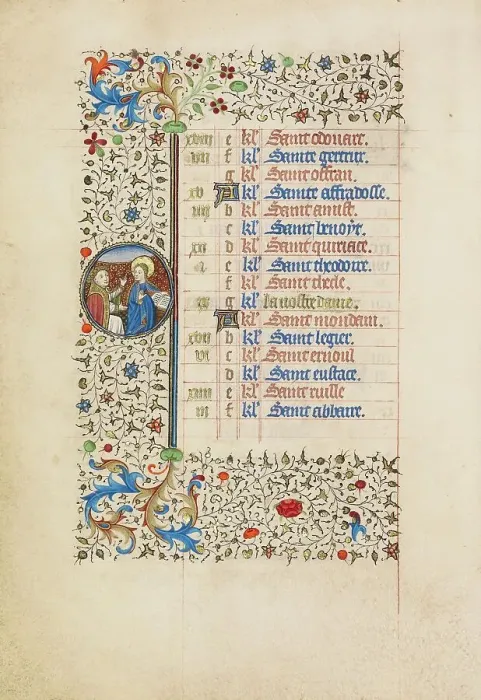 xviii e kl' Saint odouart.
vii f kl' Sainte gertrur.
g kl' Saint offran.
xv A kl' Sainte affradosse.
iiii b kl' Saint amist.
c kl' Saint benoyt.
xii d kl' Saint quiriace.
i e kl' Saint theodoire.
f kl' Saint thecle.
ix g kl' la nostre dame.
A kl' Saint mondain.
xvii b kl' Saint legier.
vi c kl' Saint ernoul
d kl' Saint eustace.
xiiii e kl' Saint
iii f kl' Saint